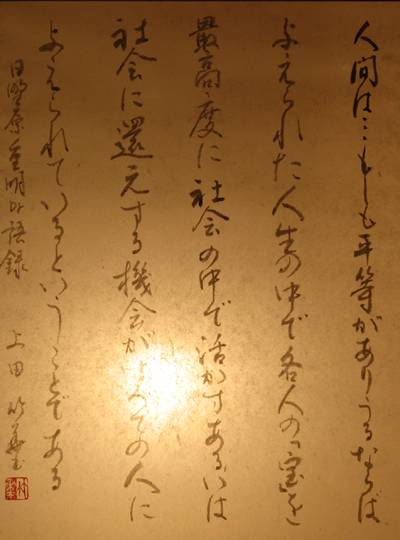 人間は もしも平等がありうるならば
与えられた人生の中で各人の宝を
最高度に社会の中で活かすあるいは
社会に還元する機会がすべての人に
与えられているということである
日野原重明の語録 上田